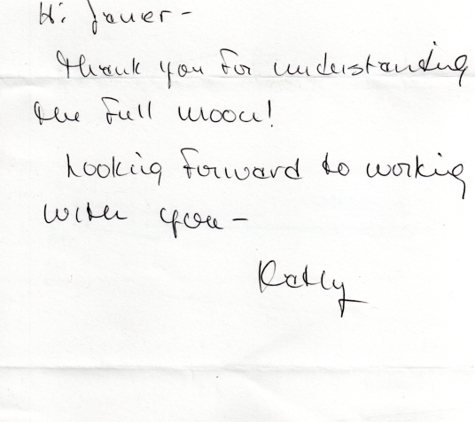 Hi
thank you for understanding
the full moon!
Looking forward to working
with you –
Kathy